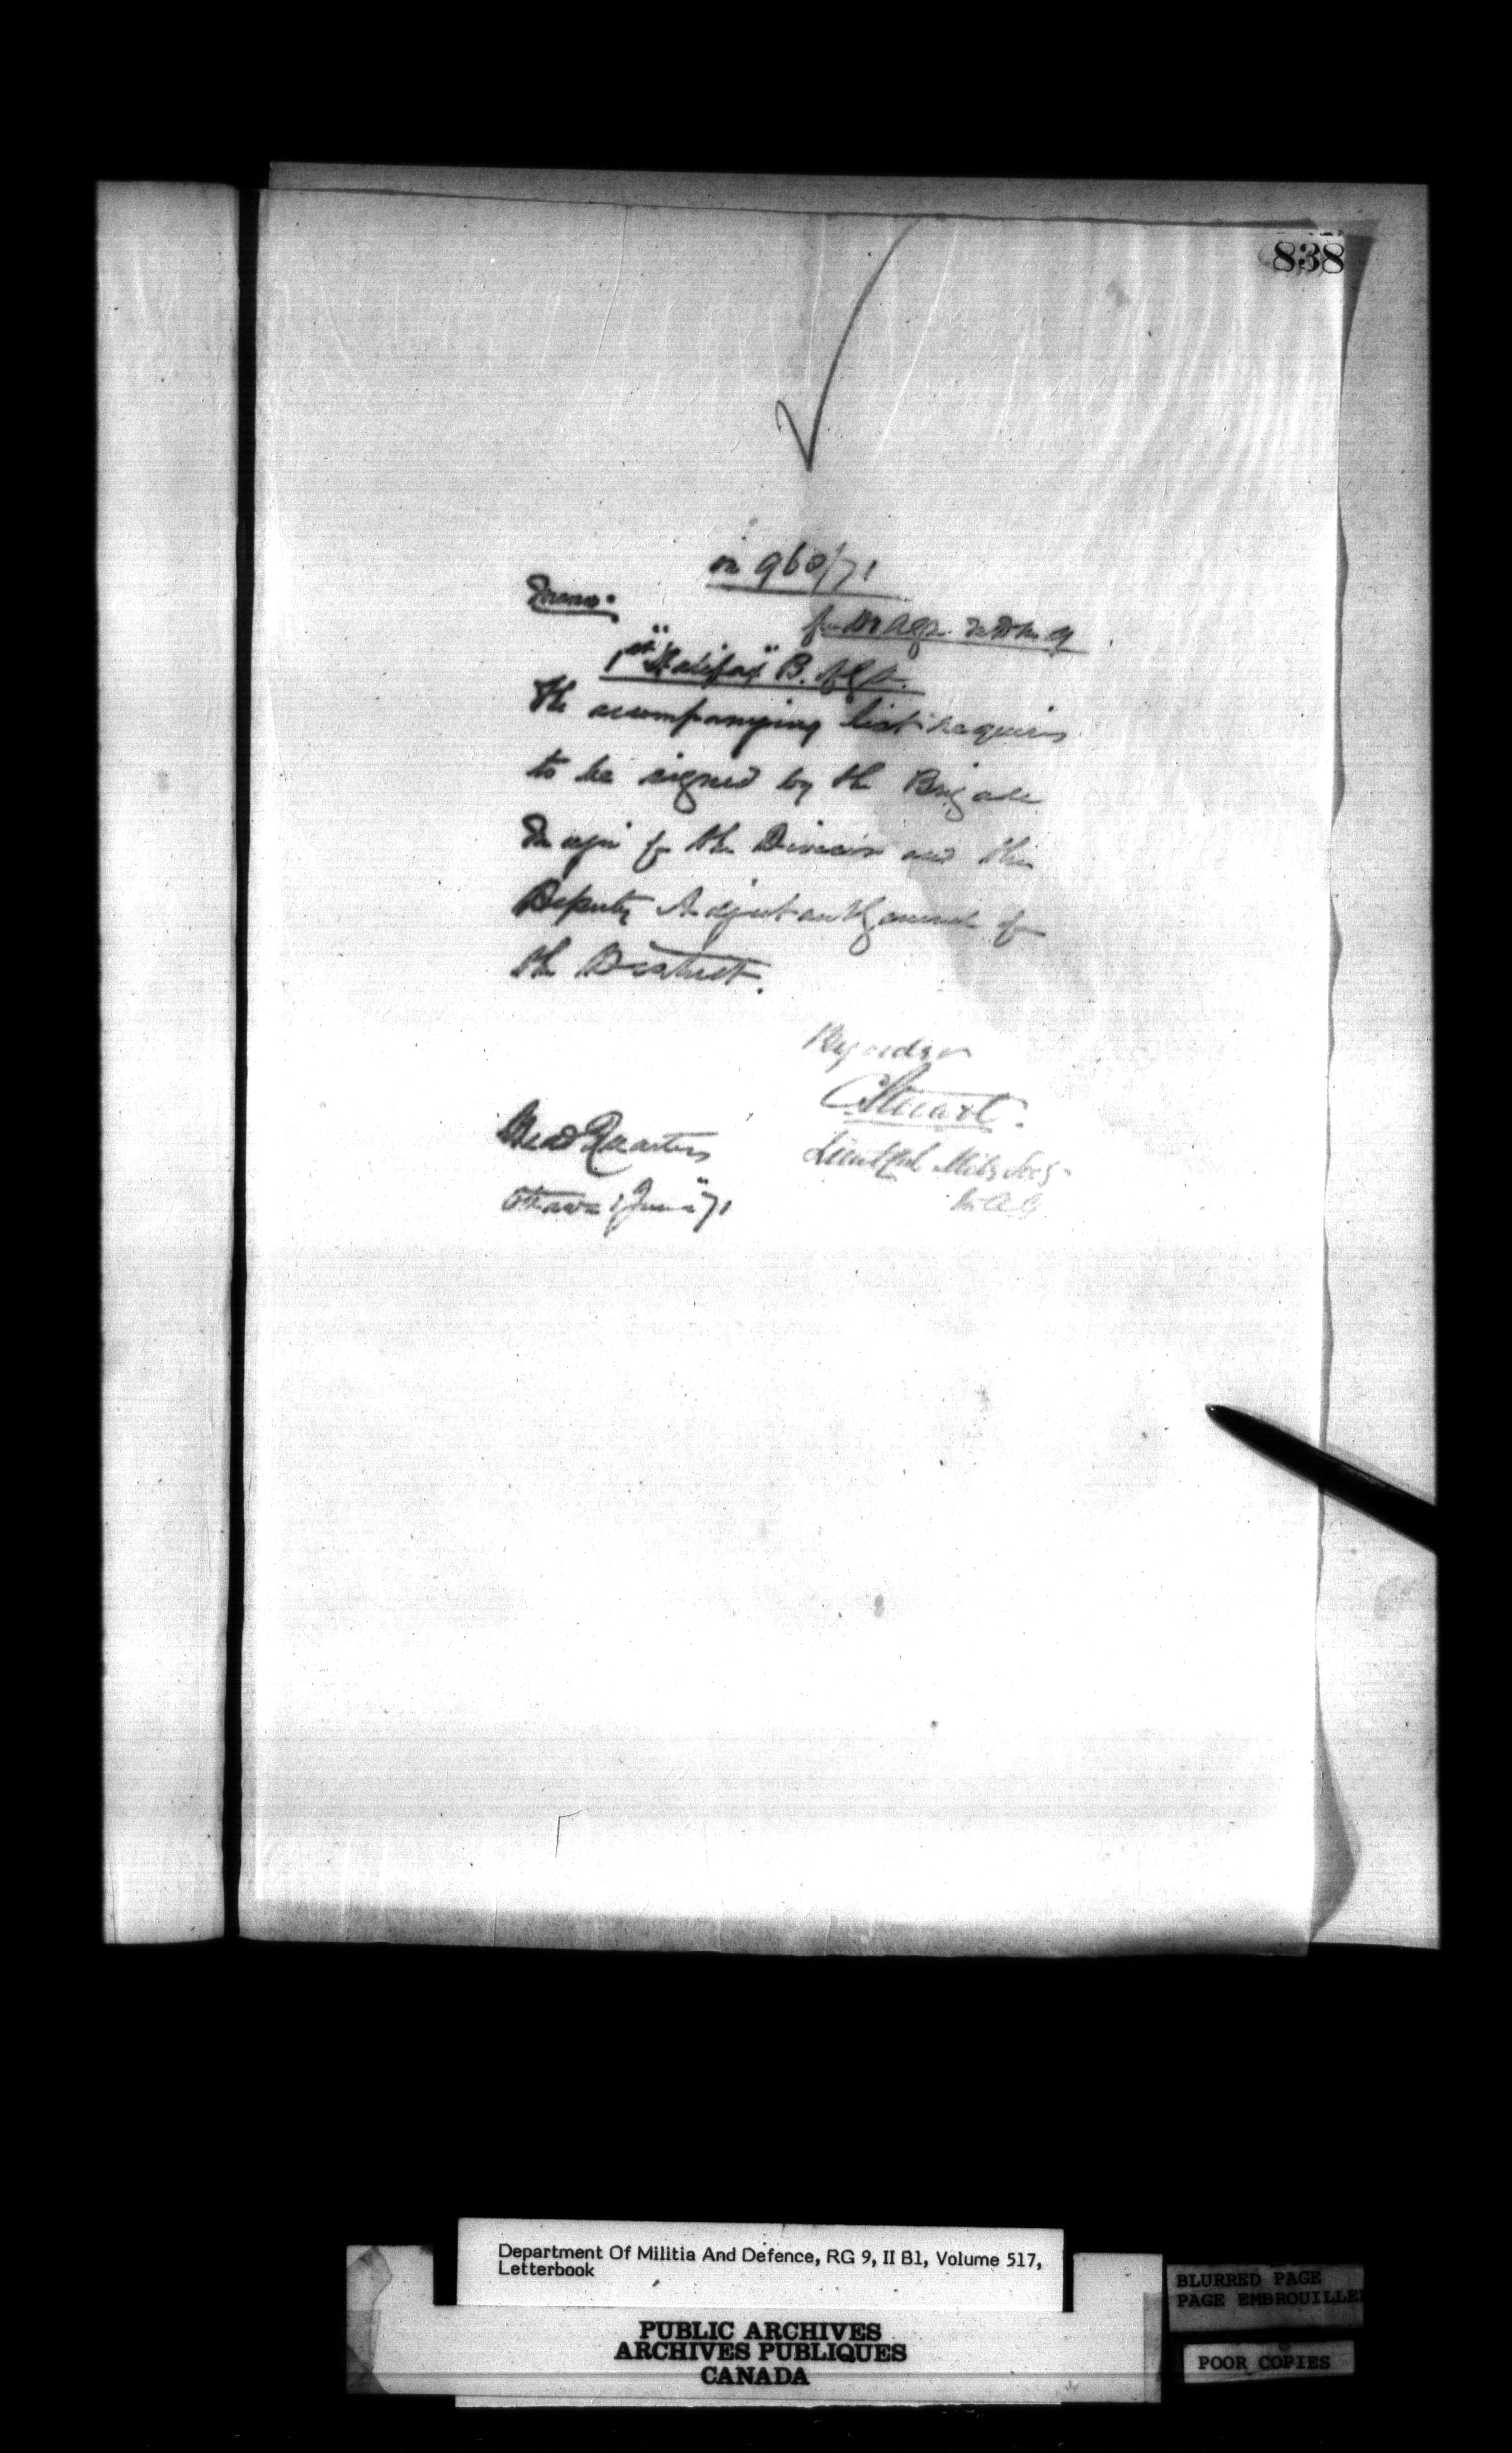 838
on 960/71
Memo.
for D A G. M D No 9
1st "Halifax" B. of G. A.
The accompanying list requires
to be signed by the Brigade
Major of the Division and the
Deputy Adjutant General of
the District.
By order
C Stuart.
Lieut Col
Head Quarters
Ottawa 1 June 71
Department Of Militia And Defence, RG 9, II B1, Volume 517,
Letterbook
PUBLIC ARCHIVES
ARCHIVES PUBLIQUES
CANADA
BLURRED PAGE
PAGE EMBROUILLE
POOR COPIES